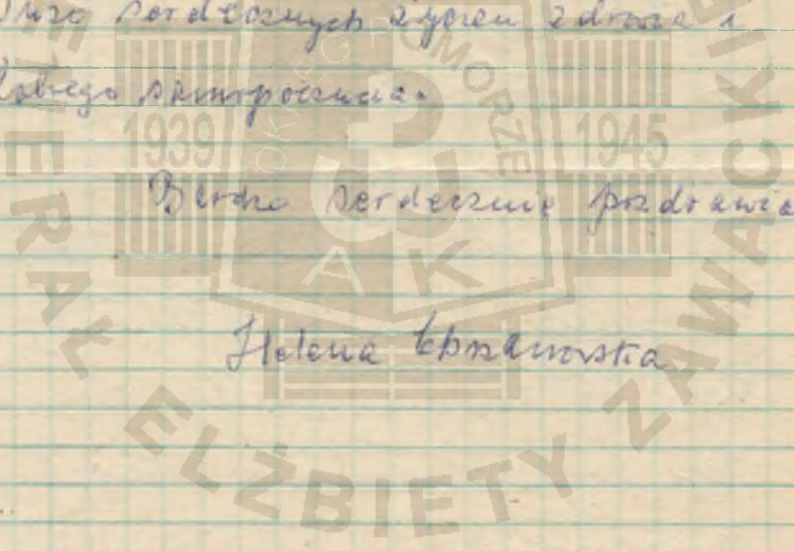 Dużo serdecznych życzeń zdrowia i
dobrego samopoczucia.
Bardzo serdecznie pozdrawia
Helena
1939
1945
OKRĘG POMORZE
AK
ELŻBIETY ZAWACKIE